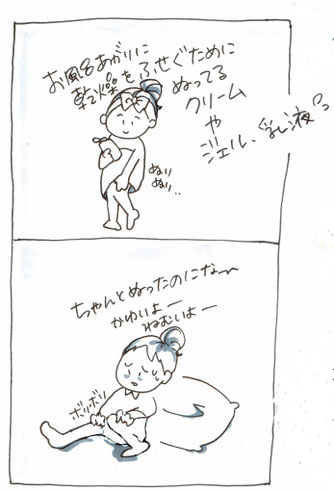 お風呂あがりに
乾燥をふせぐために
ぬってる
クリーム
や
ジェル、乳液。
ぬり
ぬり..
ちゃんとぬったのにな〜
かゆいよー
ねむいよー
ボリボリ